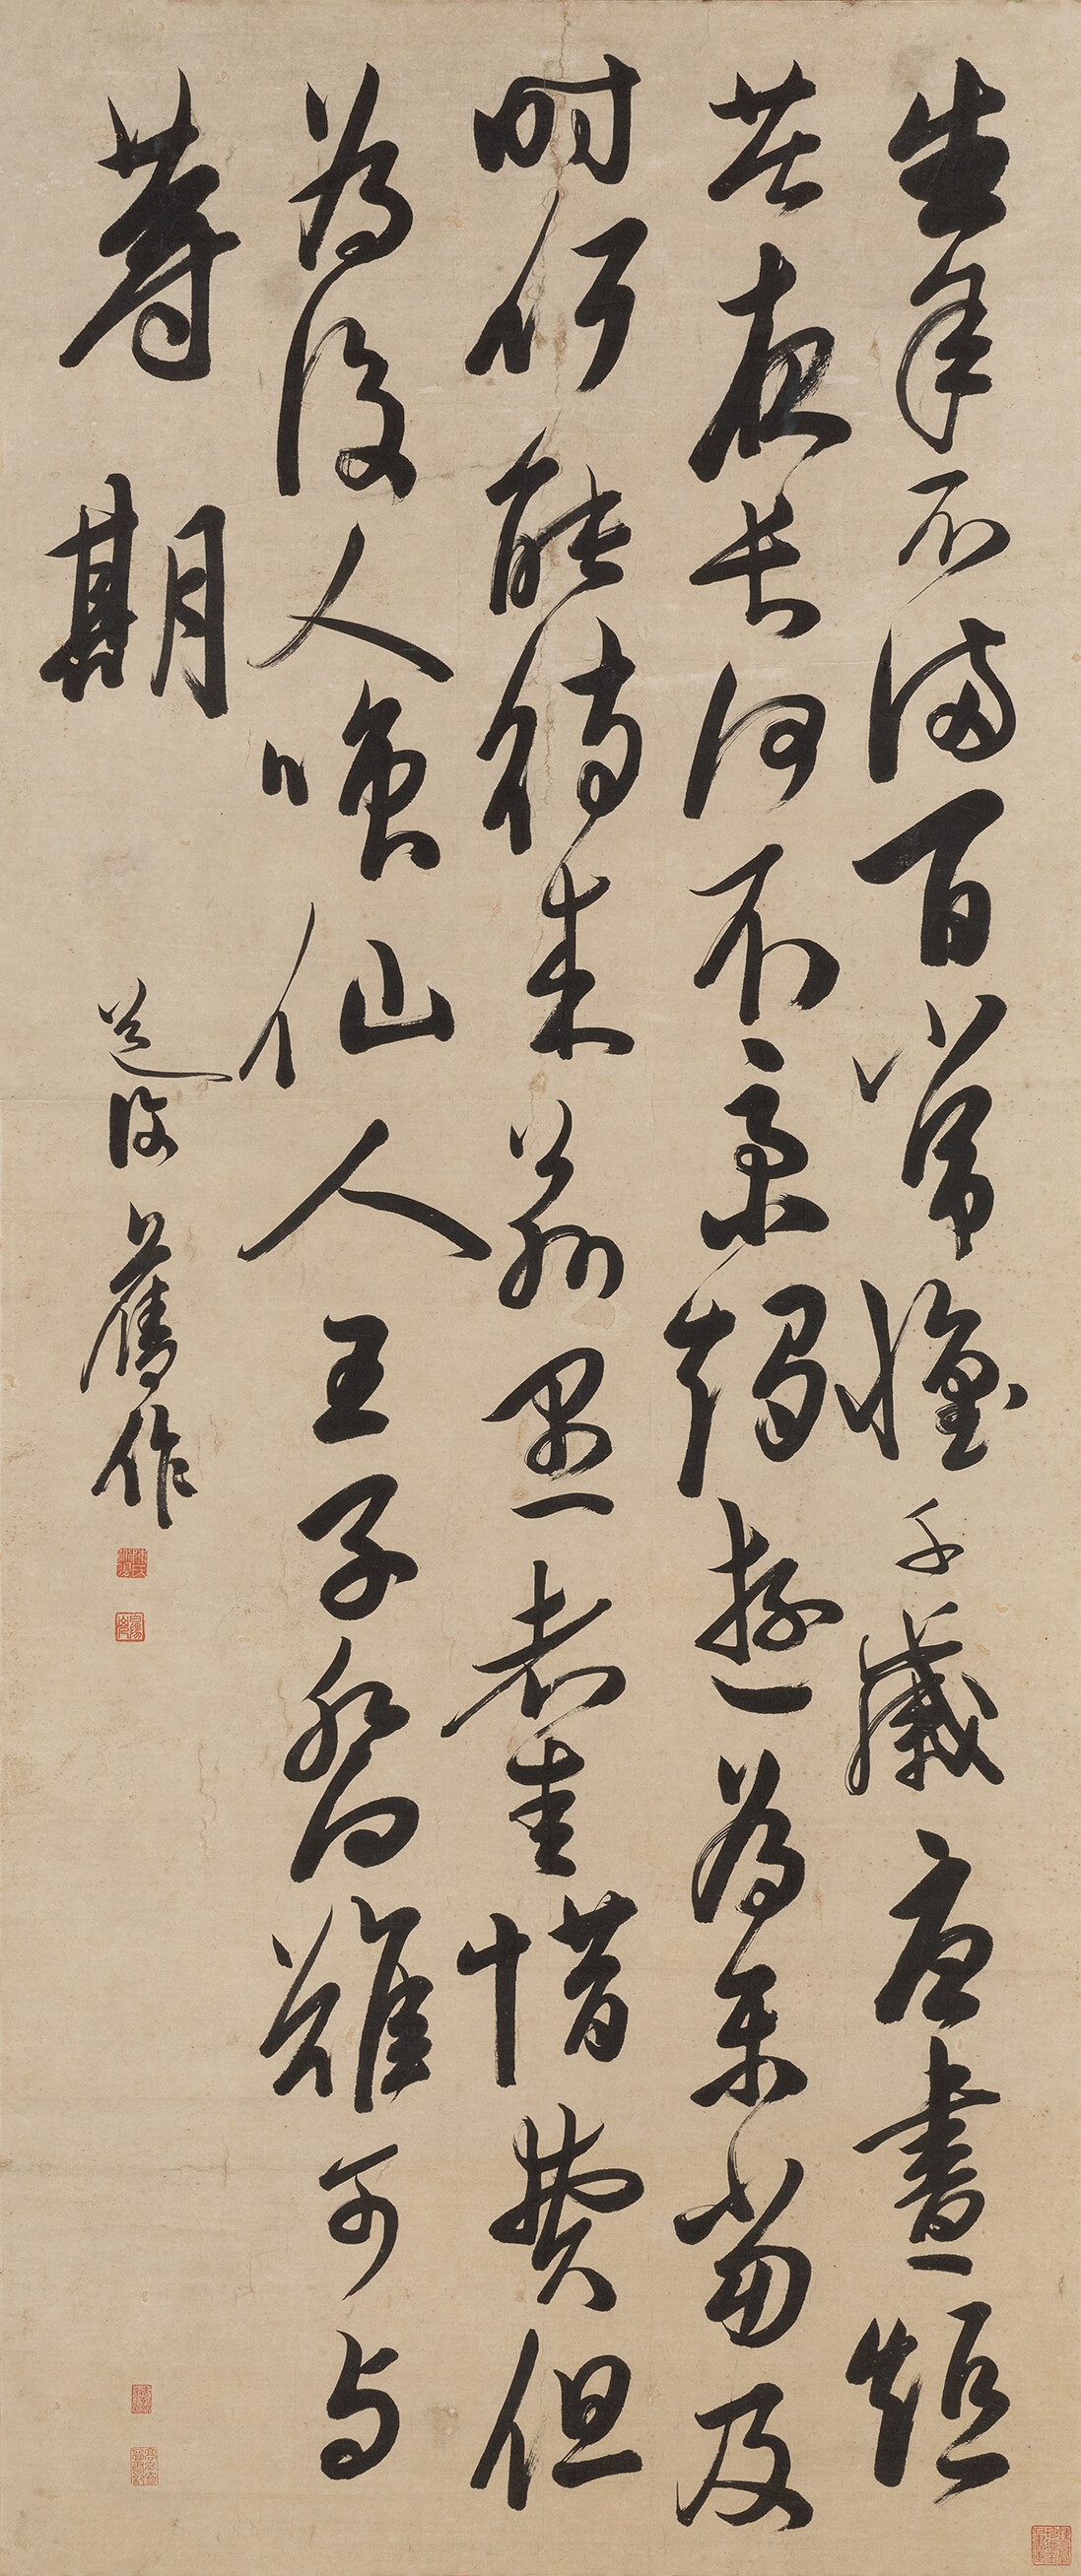 生年不滿百常懷千歲憂晝短
苦夜長何不秉燭遊為樂當及
時何能待來茲愚者愛惜費但
為後人嗤仙人王子喬難可与
等期
道復舊作